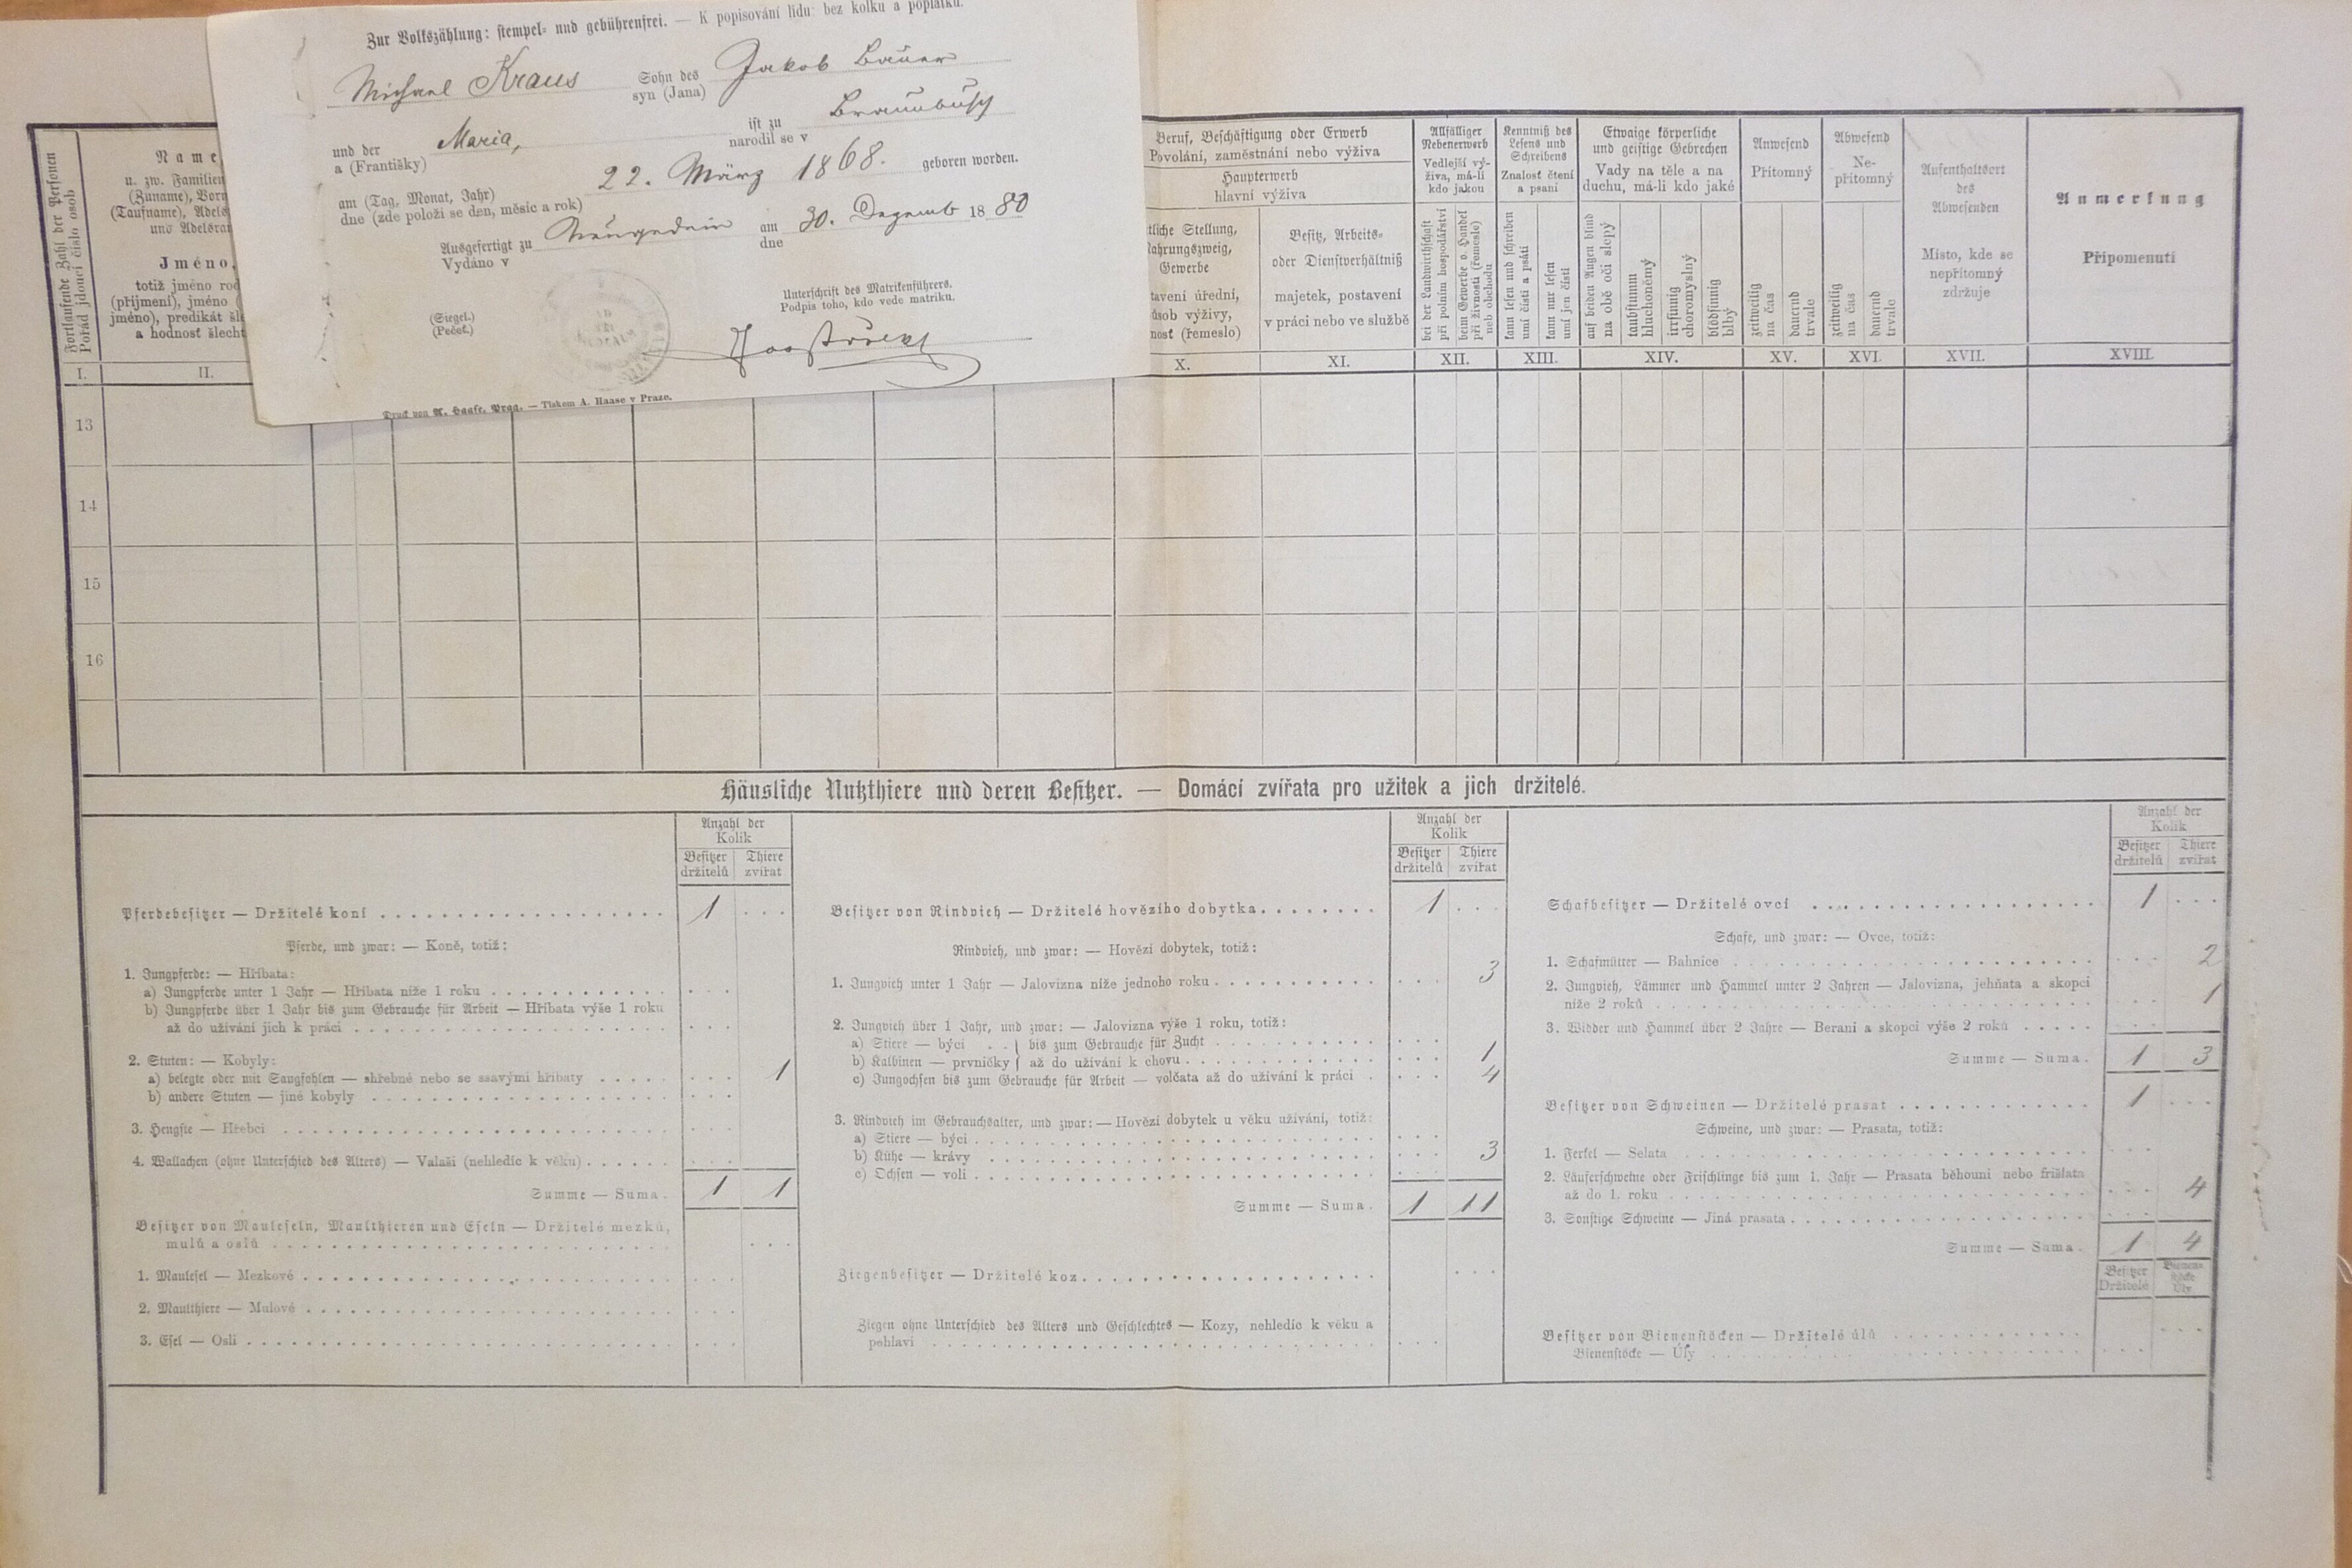 Zur Volkszählung: stempel- und gebührenfrei. — K popisování lidu: bez kolku a poplatku.
Michael Kraus Sohn des syn (Jana) Jakob Bauer
und der a (Františky) Maria, ist zu narodil se v
am (Tag, Monat, Jahr) 22. März 1868. geboren worden.
dne (zde položí se den, měsíc a rok)
Ausgefertigt zu Neugedein am 30. Dezemb 1880
Vydáno v dne
(Siegel.)
(Pečeť.)
Unterschrift des Matrikenführers.
Podpis toho, kdo vede matriku.
Druck von A. Haase, Prag. — Tiskem A. Haase v Praze.
Fortlaufende Zahl der Personen
Pořád jdoucí číslo osob
Name,
u. zw. Familien
(Zuname), Vorn
(Taufname), Adels
und Adelsran
Jméno,
totiž jméno rod
(příjmení), jméno (
jméno), predikát šle
a hodnosť šlecht
Beruf, Beschäftigung oder Erwerb
Povolání, zaměstnání nebo výživa
Haupterwerb
hlavní výživa
tliche Stellung,
Nahrungszweig,
Gewerbe
tavení úřední,
ůsob výživy,
nosť (řemeslo)
Besitz, Arbeits-
oder Dienstverhältniß
majetek, postavení
v práci nebo ve službě
Allfälliger
Nebenerwerb
Vedlejší vý-
živa, má-li
kdo jakou
bei der Landwirthschaft
při polním hospodářství
beim Gewerbe o. Handel
při živnosti (řemesle)
neb obchodu
Kenntniß des
Lesens und
Schreibens
Znalost čtení
a psaní
kann lesen und schreiben
umí čísti a psáti
kann nur lesen
umí jen čísti
Etwaige körperliche
und geistige Gebrechen
Vady na těle a na
duchu, má-li kdo jaké
auf beiden Augen blind
na obě oči slepý
taubstumm
hluchoněmý
irrsinnig
choromyslný
blödsinnig
blbý
Anwesend
Přítomný
zeitweilig
na čas
dauernd
trvale
Abwesend
Ne-
přítomný
zeitweilig
na čas
dauernd
trvale
Aufenthaltsort
des
Abwesenden
Místo, kde se
nepřítomný
zdržuje
Anmerkung
Připomenutí
I. II. X. XI. XII. XIII. XIV. XV. XVI. XVII. XVIII.
13
14
15
16
Häusliche Nutzthiere und deren Besitzer. — Domácí zvířata pro užitek a jich držitelé.
Anzahl der
Kolik
Besitzer Thiere
držitelů zvířat
Pferdebesitzer — Držitelé koní 1
Pferde, und zwar: — Koně, totiž:
1. Jungpferde: — Hříbata:
a) Jungpferde unter 1 Jahr — Hříbata níže 1 roku
b) Jungpferde über 1 Jahr bis zum Gebrauche für Arbeit — Hříbata výše 1 roku
až do užívání jich k práci
2. Stuten: — Kobyly:
a) belegte oder mit Saugfohlen — shřebné nebo se ssavými hříbaty 1
b) andere Stuten — jiné kobyly
3. Hengste — Hřebci
4. Wallachen (ohne Unterschied des Alters) — Valaši (nehledíc k věku)
Summe — Suma. 1 1
Besitzer von Mauleseln, Maulthieren und Eseln — Držitelé mezků,
mulů a oslů
1. Maulesel — Mezkové
2. Maulthiere — Mulové
3. Esel — Osli
Anzahl der
Kolik
Besitzer Thiere
držitelů zvířat
Besitzer von Rindvieh — Držitelé hovězího dobytka 1
Rindvieh, und zwar: — Hovězí dobytek, totiž:
1. Jungvieh unter 1 Jahr — Jalovizna níže jednoho roku 3
2. Jungvieh über 1 Jahr, und zwar: — Jalovizna výše 1 roku, totiž:
a) Stiere — býci } bis zum Gebrauche für Zucht
b) Kalbinen — prvničky } až do užívání k chovu 1
c) Jungochsen bis zum Gebrauche für Arbeit — volčata až do užívání k práci 4
3. Rindvieh im Gebrauchsalter, und zwar: — Hovězí dobytek u věku užívání, totiž:
a) Stiere — býci
b) Kühe — krávy 3
c) Ochsen — voli
Summe — Suma. 1 11
Ziegenbesitzer — Držitelé koz
Ziegen ohne Unterschied des Alters und Geschlechtes — Kozy, nehledíc k věku a
pohlaví
Anzahl der
Kolik
Besitzer Thiere
držitelů zvířat
Schafbesitzer — Držitelé ovcí 1
Schafe, und zwar: — Ovce, totiž:
1. Schafmütter — Bahnice 2
2. Jungvieh, Lämmer und Hammel unter 2 Jahren — Jalovizna, jehňata a skopci
níže 2 roků 1
3. Widder und Hammel über 2 Jahre — Berani a skopci výše 2 roků
Summe — Suma. 1 3
Besitzer von Schweinen — Držitelé prasat 1
Schweine, und zwar: — Prasata, totiž:
1. Ferkel — Selata
2. Läuferschweine oder Frischlinge bis zum 1. Jahr — Prasata běhouni nebo frišlata
až do 1. roku 4
3. Sonstige Schweine — Jiná prasata
Summe — Suma. 1 4
Besitzer Bienen-
Držitelé stöcke
Úly
Besitzer von Bienenstöcken — Držitelé úlů
Bienenstöcke — Úly